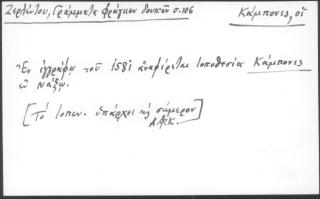 Ζερλέντου, Γράμματα φράγκων δουκῶν σ. 106
Κάμπονες, οἱ
Ἐν ἐγγράφῳ τοῦ 1581 ἀναφέρεται τοποθεσία Κάμπονες
ἐν Νάξῳ.
[Τὸ τοπων. ὑπάρχει καὶ σήμερον]
Α.Φ.Κ.